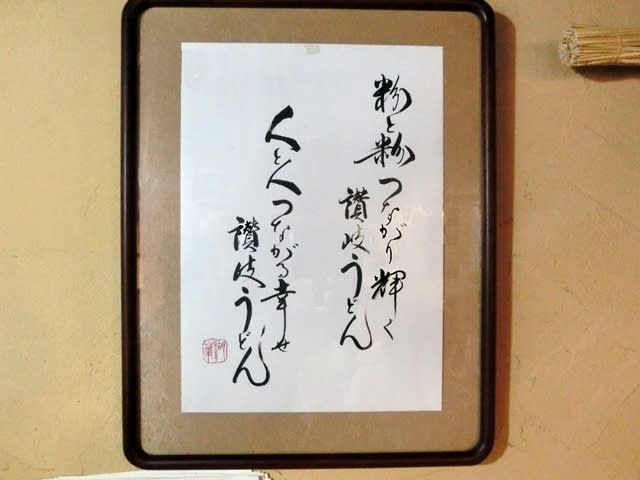 粉と粉つながり輝く
讃岐うどん
人と人つながる幸せ
讃岐うどん